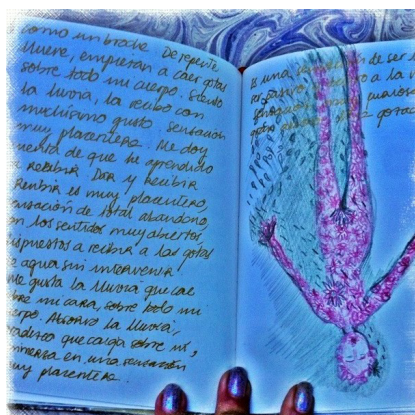 como un broche. De repente
llueve, empiezan a caer gotas
sobre todo mi cuerpo. Siento
la lluvia, la recibo con
muchísimo gusto. Sensación
muy placentera. Me doy
cuenta de que he aprendido
a recibir. Dar y recibir
Recibir es muy placentero,
sensación de total abandono,
con los sentidos muy abiertos,
dispuestos a recibir a las gotas
de agua sin intervenir.
Me gusta la lluvia que cae
sobre mi cara, sobre todo mi
cuerpo. Absorbo la lluvia,
agradezco que caiga sobre mí,
inmersa en una sensación
muy placentera.
es una sensación de ser
a la
sensación muy curiosa
gotas